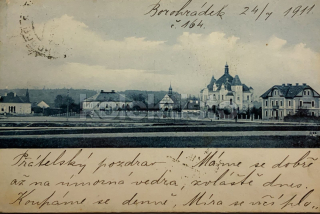 Borohrádek 24/7 1911
č 164.
Přátelský pozdrav! Máme se dobře
až na úmorná vedra, zvláště dnes.
Koupáme se denně. Míra se učí plo-